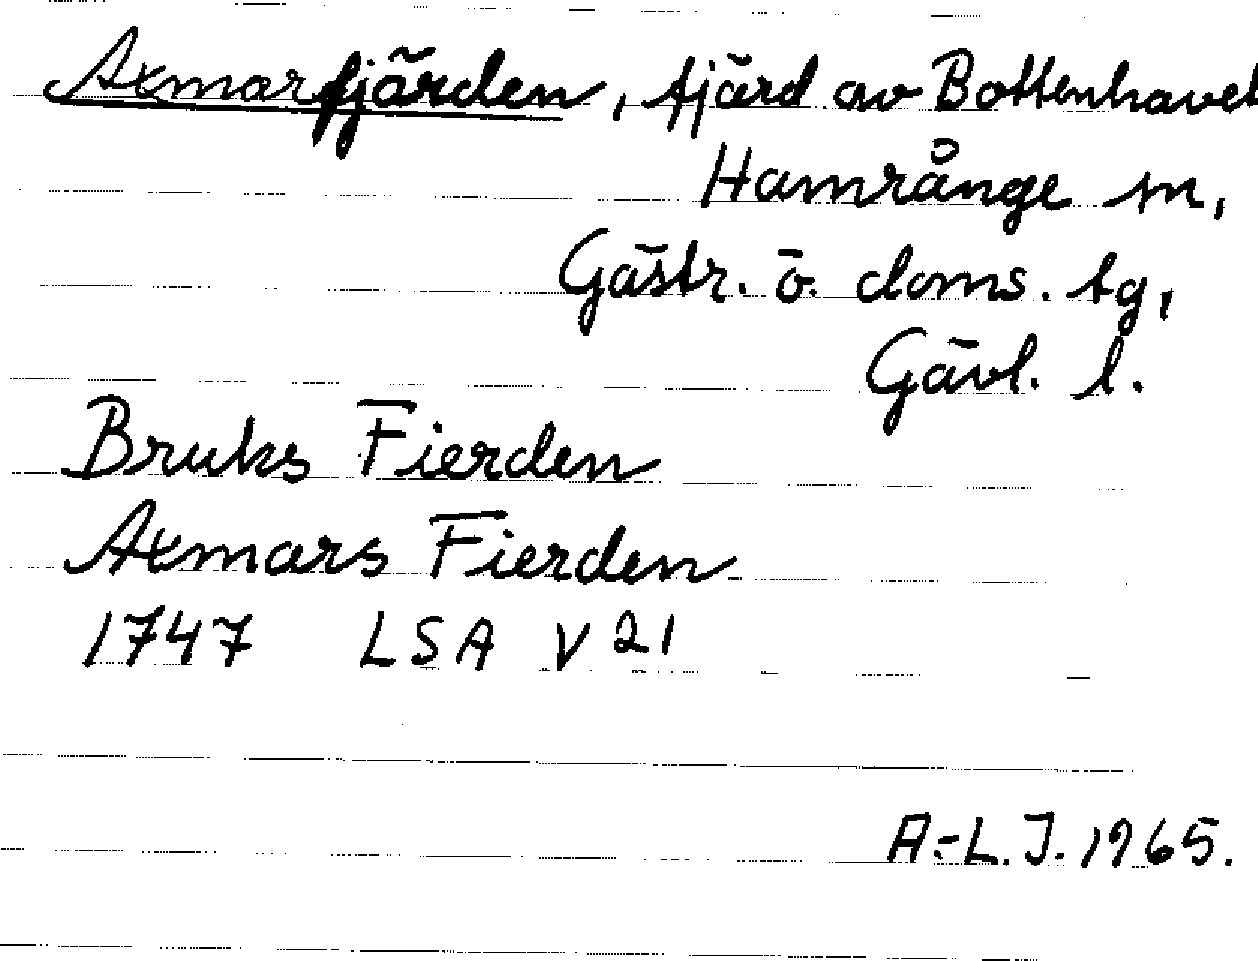 Axmarfjärden, fjärd av Bottenhavet
Hamrånge sn,
Gästr. ö. doms. tg,
Gävl. l.
Bruks Fierden
Axmars Fierden
1747 LSA V 21
A.-L. J. 1965.